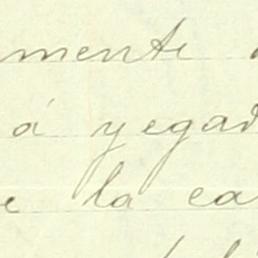 mente
á yegad
e la ca